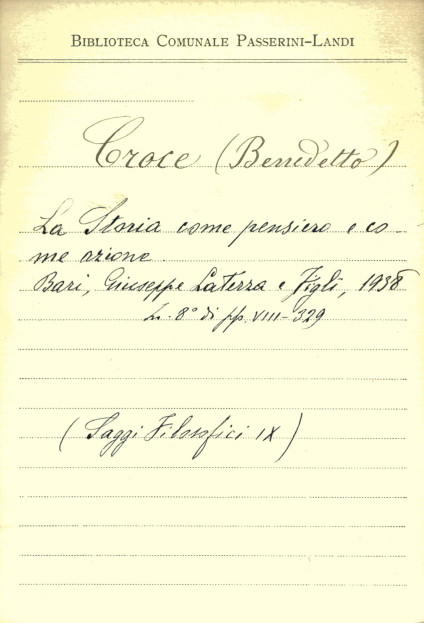 BIBLIOTECA COMUNALE PASSERINI-LANDI
Croce (Benedetto)
La Storia come pensiero e co-
me azione.
Bari, Giuseppe Laterza e Figli, 1938
in 8° di pp. VIII-329
(Saggi Filosofici IX)